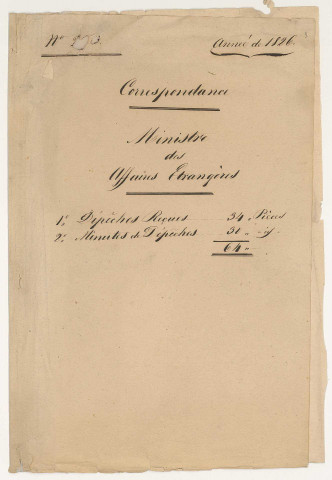 No
Année de 1826.
Correspondance
Ministre
des
Affaires Etrangères
1o. Dépêches Reçues 34 Pièces
2o. Minutes de Dépêches 30 " id
64 "